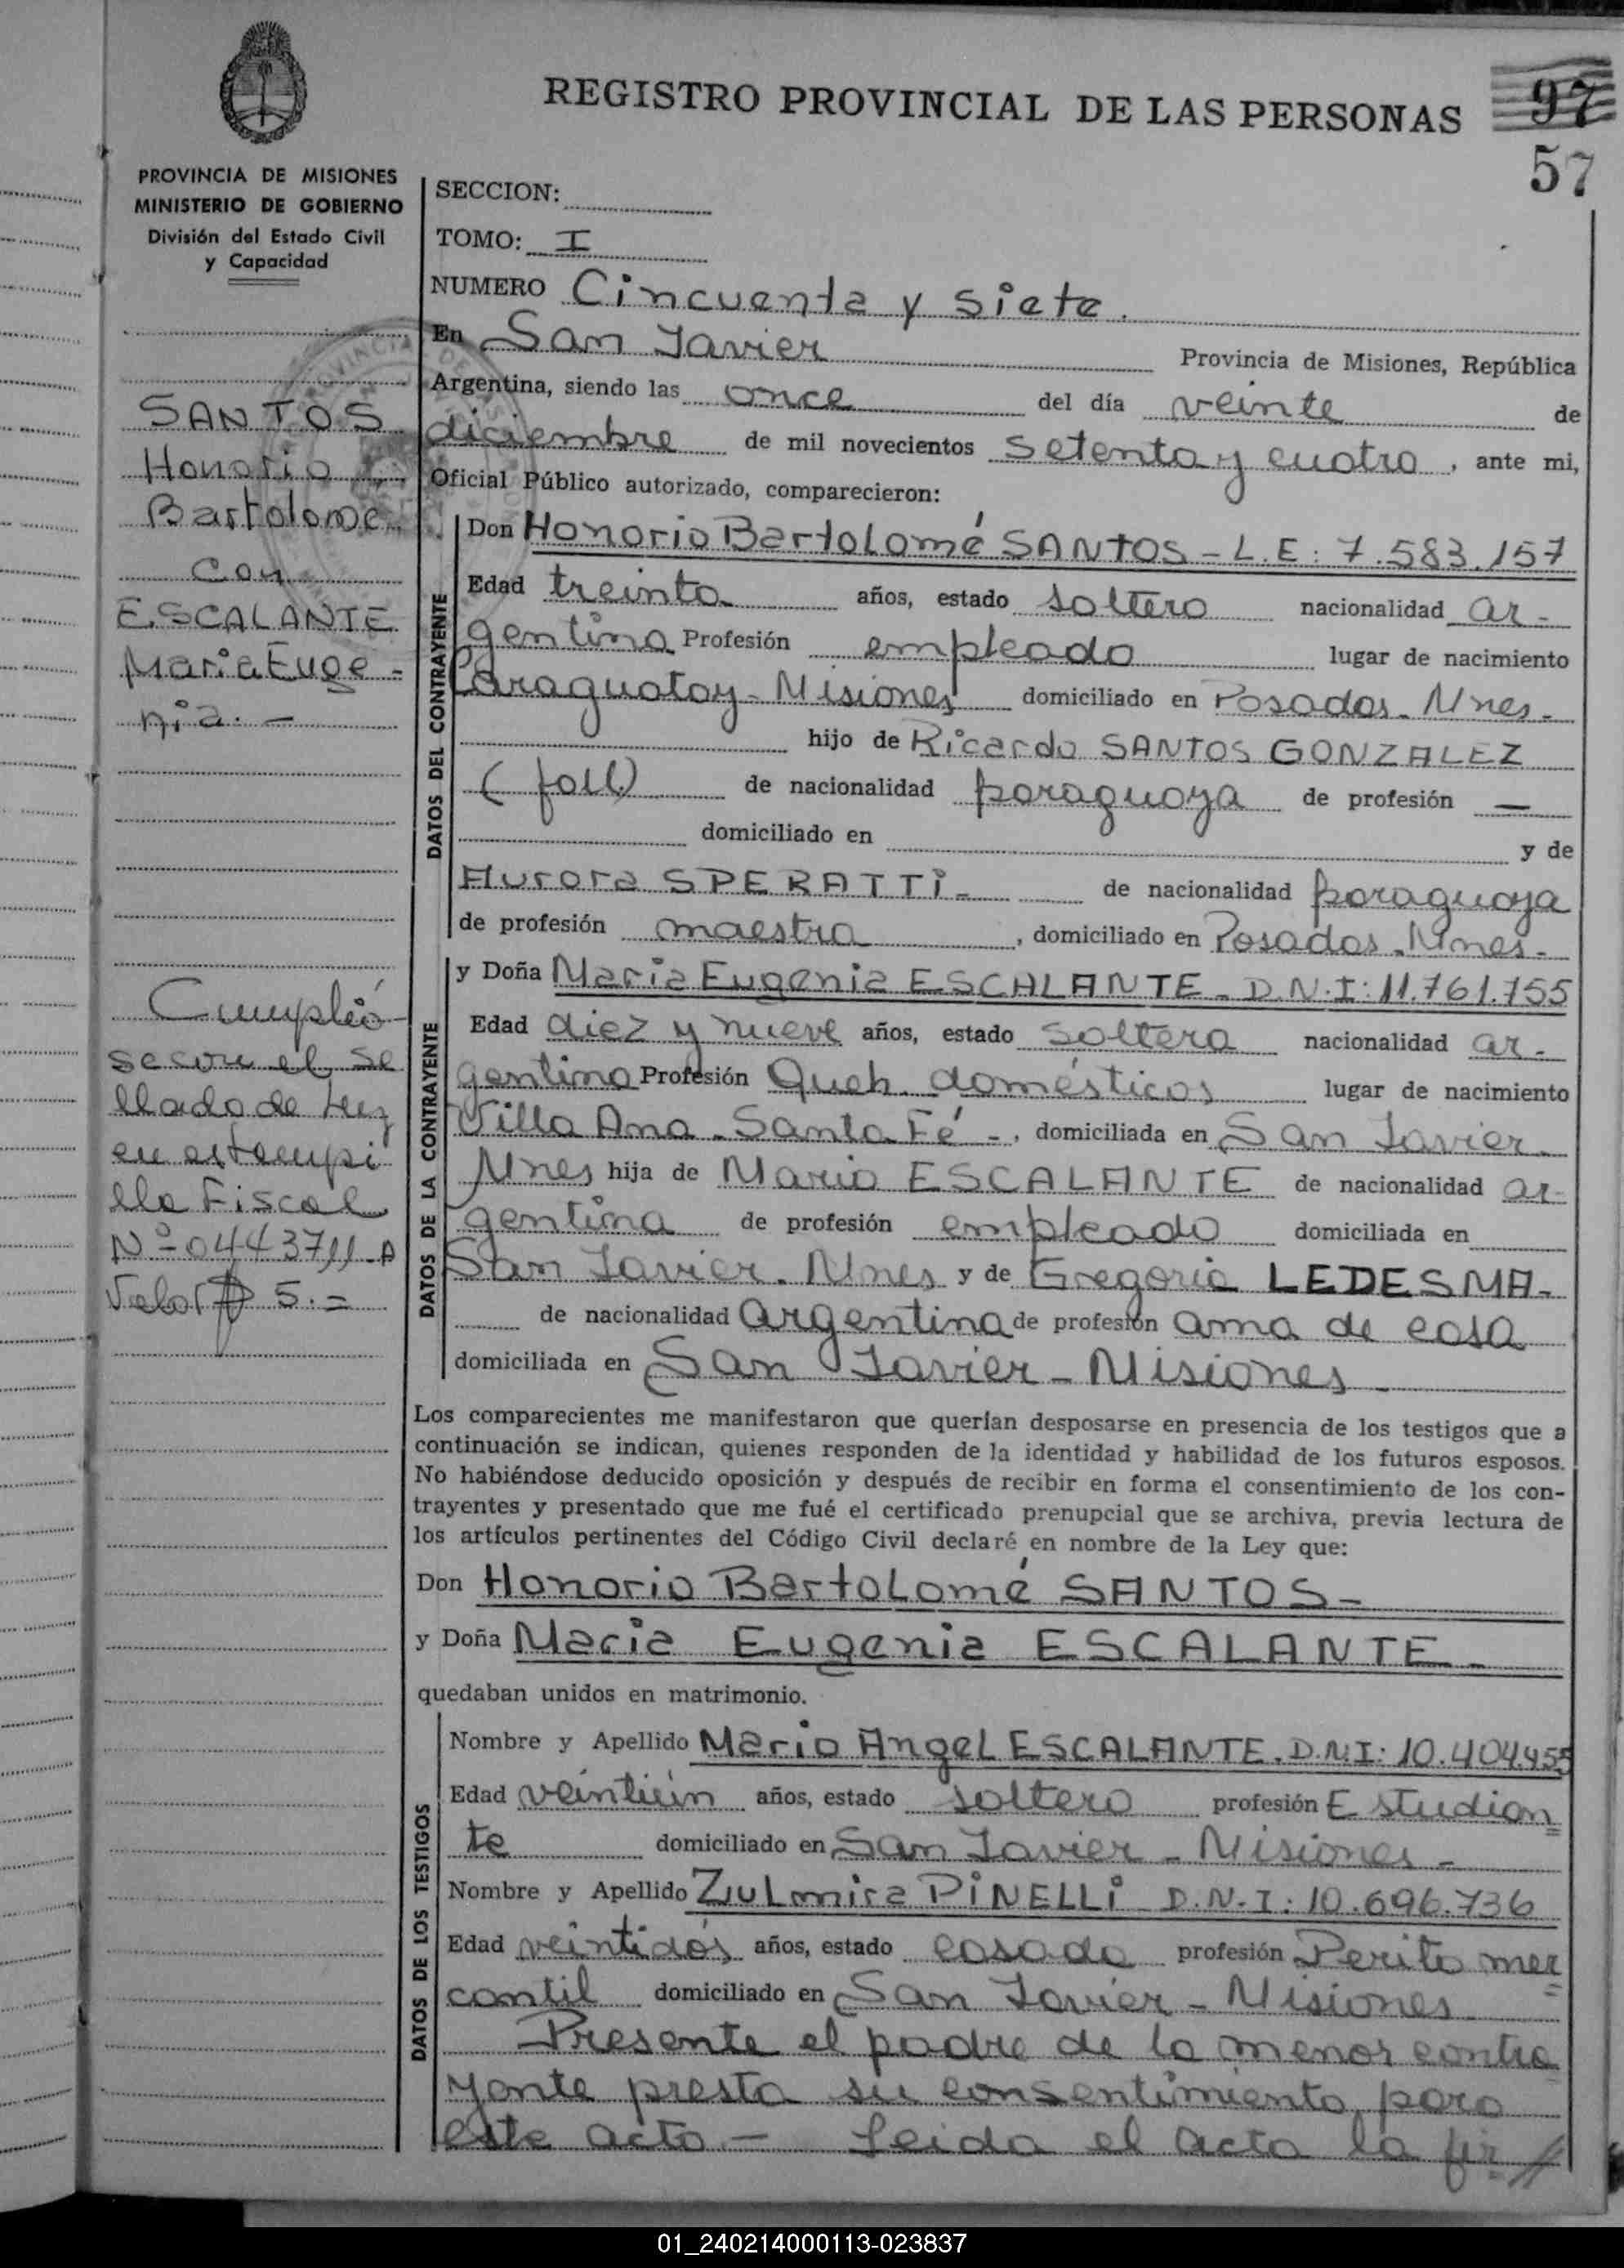 REGISTRO PROVINCIAL DE LAS PERSONAS
97
57
PROVINCIA DE MISIONES
MINISTERIO DE GOBIERNO
División del Estado Civil
y Capacidad
SANTOS
Honorio
Bartolome
con
ESCALANTE
Maria Euge-
nia.-
Cumplió-
se con el se
llado de Ley
en estampi
lla Fiscal
Nº 0443711-A
Valor $ 5.=
SECCION:
TOMO: I
NUMERO Cincuenta y siete.
En San Javier Provincia de Misiones, República
Argentina, siendo las once del día veinte de
diciembre de mil novecientos setenta y cuatro, ante mi,
Oficial Público autorizado, comparecieron:
DATOS DEL CONTRAYENTE
Don Honorio Bartolomé SANTOS - L.E: 7.583.157
Edad treinta años, estado soltero nacionalidad ar-
gentina Profesión empleado lugar de nacimiento
Caraguatay - Misiones domiciliado en Posadas - Mnes.-
hijo de Ricardo SANTOS GONZALEZ
(fall) de nacionalidad paraguaya de profesión —
domiciliado en y de
Aurora SPERATTI - de nacionalidad paraguaya
de profesión maestra, domiciliado en Posadas. Mnes-
DATOS DE LA CONTRAYENTE
y Doña Maria Eugenia ESCALANTE - D.N.I: 11.761.755
Edad diez y nueve años, estado soltera nacionalidad ar-
gentina Profesión Queh. domésticos lugar de nacimiento
Villa Ana - Santa Fé -, domiciliada en San Javier
Mnes hija de Mario ESCALANTE de nacionalidad ar-
gentina de profesión empleado domiciliada en
San Javier. Mnes y de Gregoria LEDESMA-
de nacionalidad argentina de profesión ama de casa
domiciliada en San Javier - Misiones
Los comparecientes me manifestaron que querían desposarse en presencia de los testigos que a
continuación se indican, quienes responden de la identidad y habilidad de los futuros esposos.
No habiéndose deducido oposición y después de recibir en forma el consentimiento de los con-
trayentes y presentado que me fué el certificado prenupcial que se archiva, previa lectura de
los artículos pertinentes del Código Civil declaré en nombre de la Ley que:
Don Honorio Bartolomé SANTOS-
y Doña Maria Eugenia ESCALANTE-
quedaban unidos en matrimonio.
DATOS DE LOS TESTIGOS
Nombre y Apellido Mario Angel ESCALANTE. D.N.I: 10.404.455
Edad veintiún años, estado soltero profesión Estudian
te domiciliado en San Javier - Misiones -
Nombre y Apellido Zulmira PINELLI D.N.I: 10.696.736
Edad veintidós años, estado casada profesión Perito mer
cantil domiciliado en San Javier - Misiones
Presente el padre de la menor contra
yente presta su consentimiento para
este acto.- Leida el acta la fir//
01_240214000113-023837